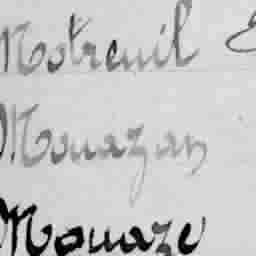 Motreuil
Mouazan
Mouaze